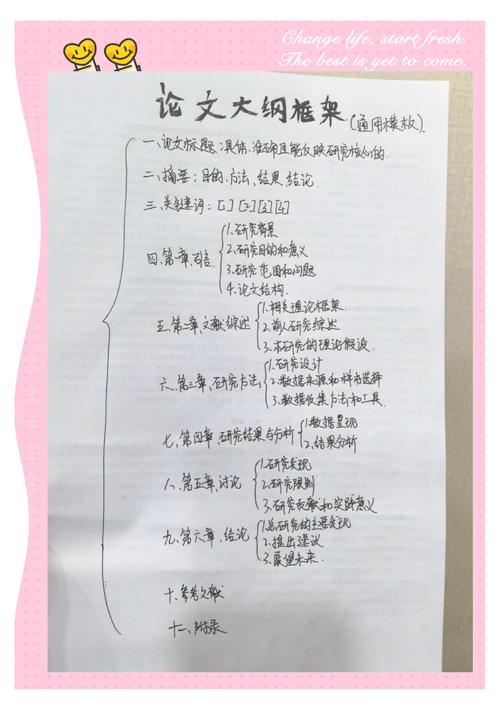 Change life, start fresh.
The best is yet to come.
论文大纲框架(通用模板)
一、论文标题:具体、准确且能反映研究核心的
二、摘要:目的、方法、结果、结论
三、关键词:[1] [2] [3] [4]
四、第一章,引言
1.研究背景
2.研究目的和意义
3.研究范围和问题
4.论文结构
五、第二章,文献综述
1.相关理论框架
2.前人研究综述
3.本研究的理论假设
六、第三章,研究方法
1.研究设计
2.数据来源和样本选择
3.数据收集方法和工具
七、第四章,研究结果与分析
1.数据呈现
2.结果分析
八、第五章,讨论
1.研究发现
2.研究限制
3.研究贡献和实践意义
九、第六章,结论
1.总研究的主要发现
2.提出建议
3.展望未来
十、参考文献
十一、附录